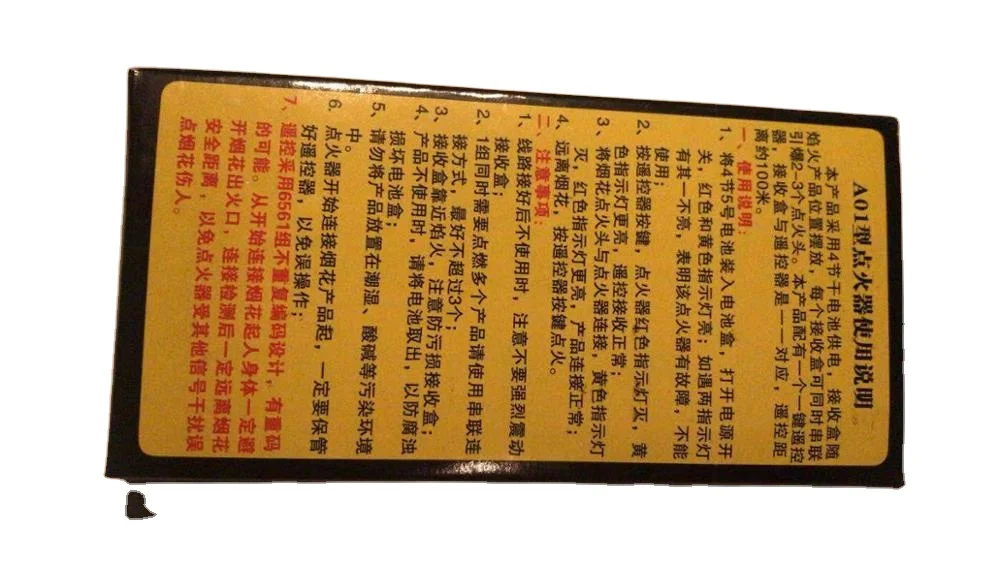 A01型点火器使用说明
本产品采用4节干电池供电，接收盒随
焰火产品位置摆放，每个接收盒可同时串联
引爆2-3个点火头。本产品配有一个一键遥控
器，接收盒与遥控器是一一对应，遥控距
离约100米。
一、使用说明：
1、将4节5号电池装入电池盒，打开电源开
关，红色和黄色指示灯亮；如遇两指示灯
有其一不亮，表明该点火器有故障，不能
使用；
2、按遥控器按键，点火器红色指示灯灭，黄
色指示灯更亮，遥控接收正常；
3、将烟花点火头与点火器连接，黄色指示灯
灭，红色指示灯更亮，产品连接正常；
4、远离烟花，按遥控器按键点火。
二、注意事项：
1、线路接好后不使用时，注意不要强烈震动
接收盒；
2、1组同时需要点燃多个产品请使用串联连
接方式，最好不超过3个；
3、接收盒靠近焰火，注意防污损接收盒；
4、产品不使用时，请将电池取出，以防腐浊
损坏电池盒；
5、请勿将产品放置在潮湿、酸碱等污染环境
中。
6、点火器开始连接烟花产品起，一定要保管
好遥控器，以免误操作；
7、遥控采用6561组不重复编码设计，有重码
的可能。从开始连接烟花起人身体一定避
开烟花出火口，连接检测后一定远离烟花
安全距离，以免点火器受其他信号干扰误
点烟花伤人。